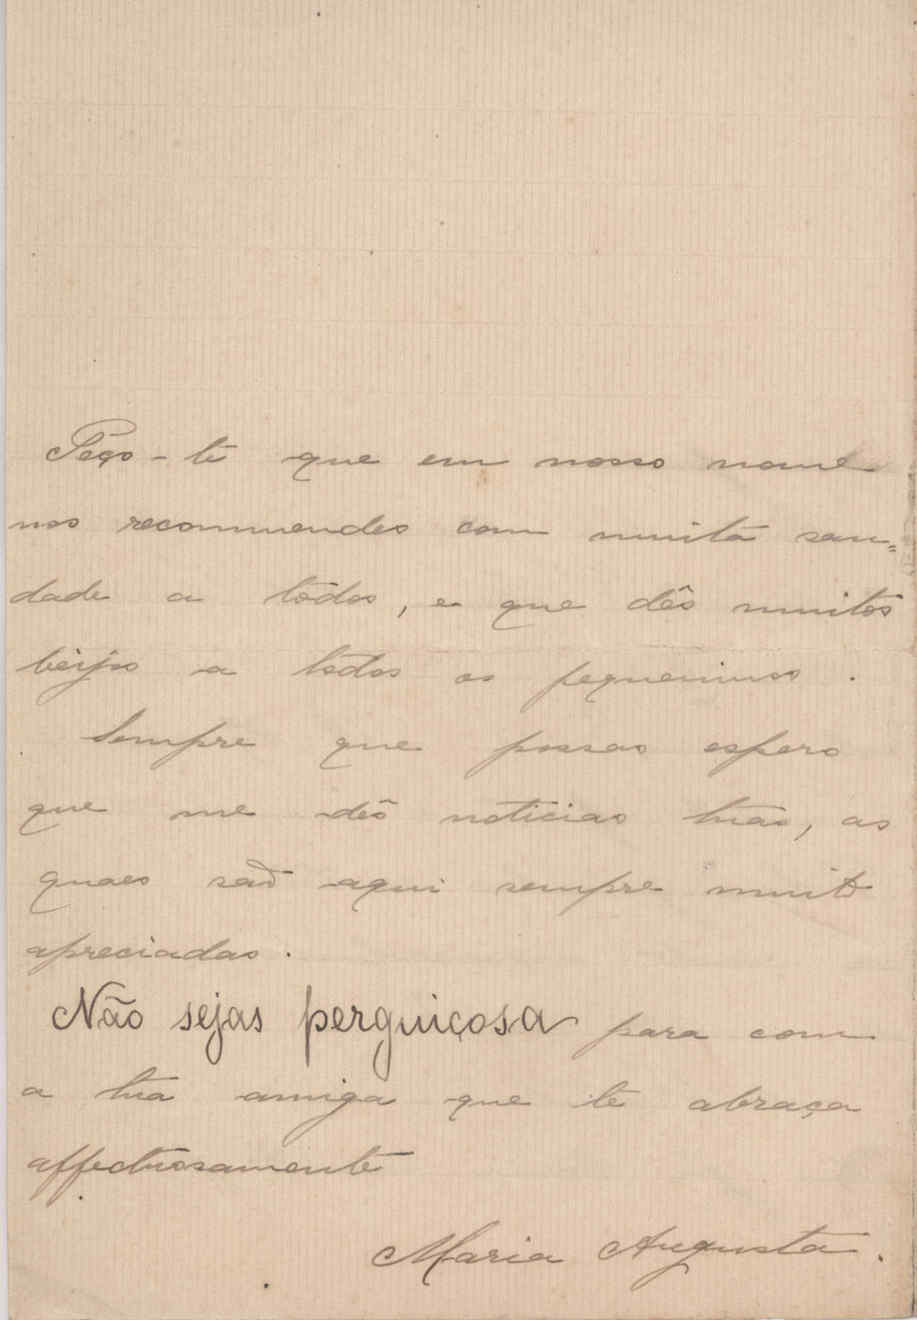 Peço-te que em nosso nome
nos recommendes com muita sau=
dade a todos, e que dês muitos
beijos a todos os pequeninos.
Sempre que possas espero
que me dês noticias tuas, as
quaes saõ aqui sempre muito
apreciadas.
Não sejas perguiçosa para com
a tua amiga que te abraça
affectuosamente
Maria Augusta.